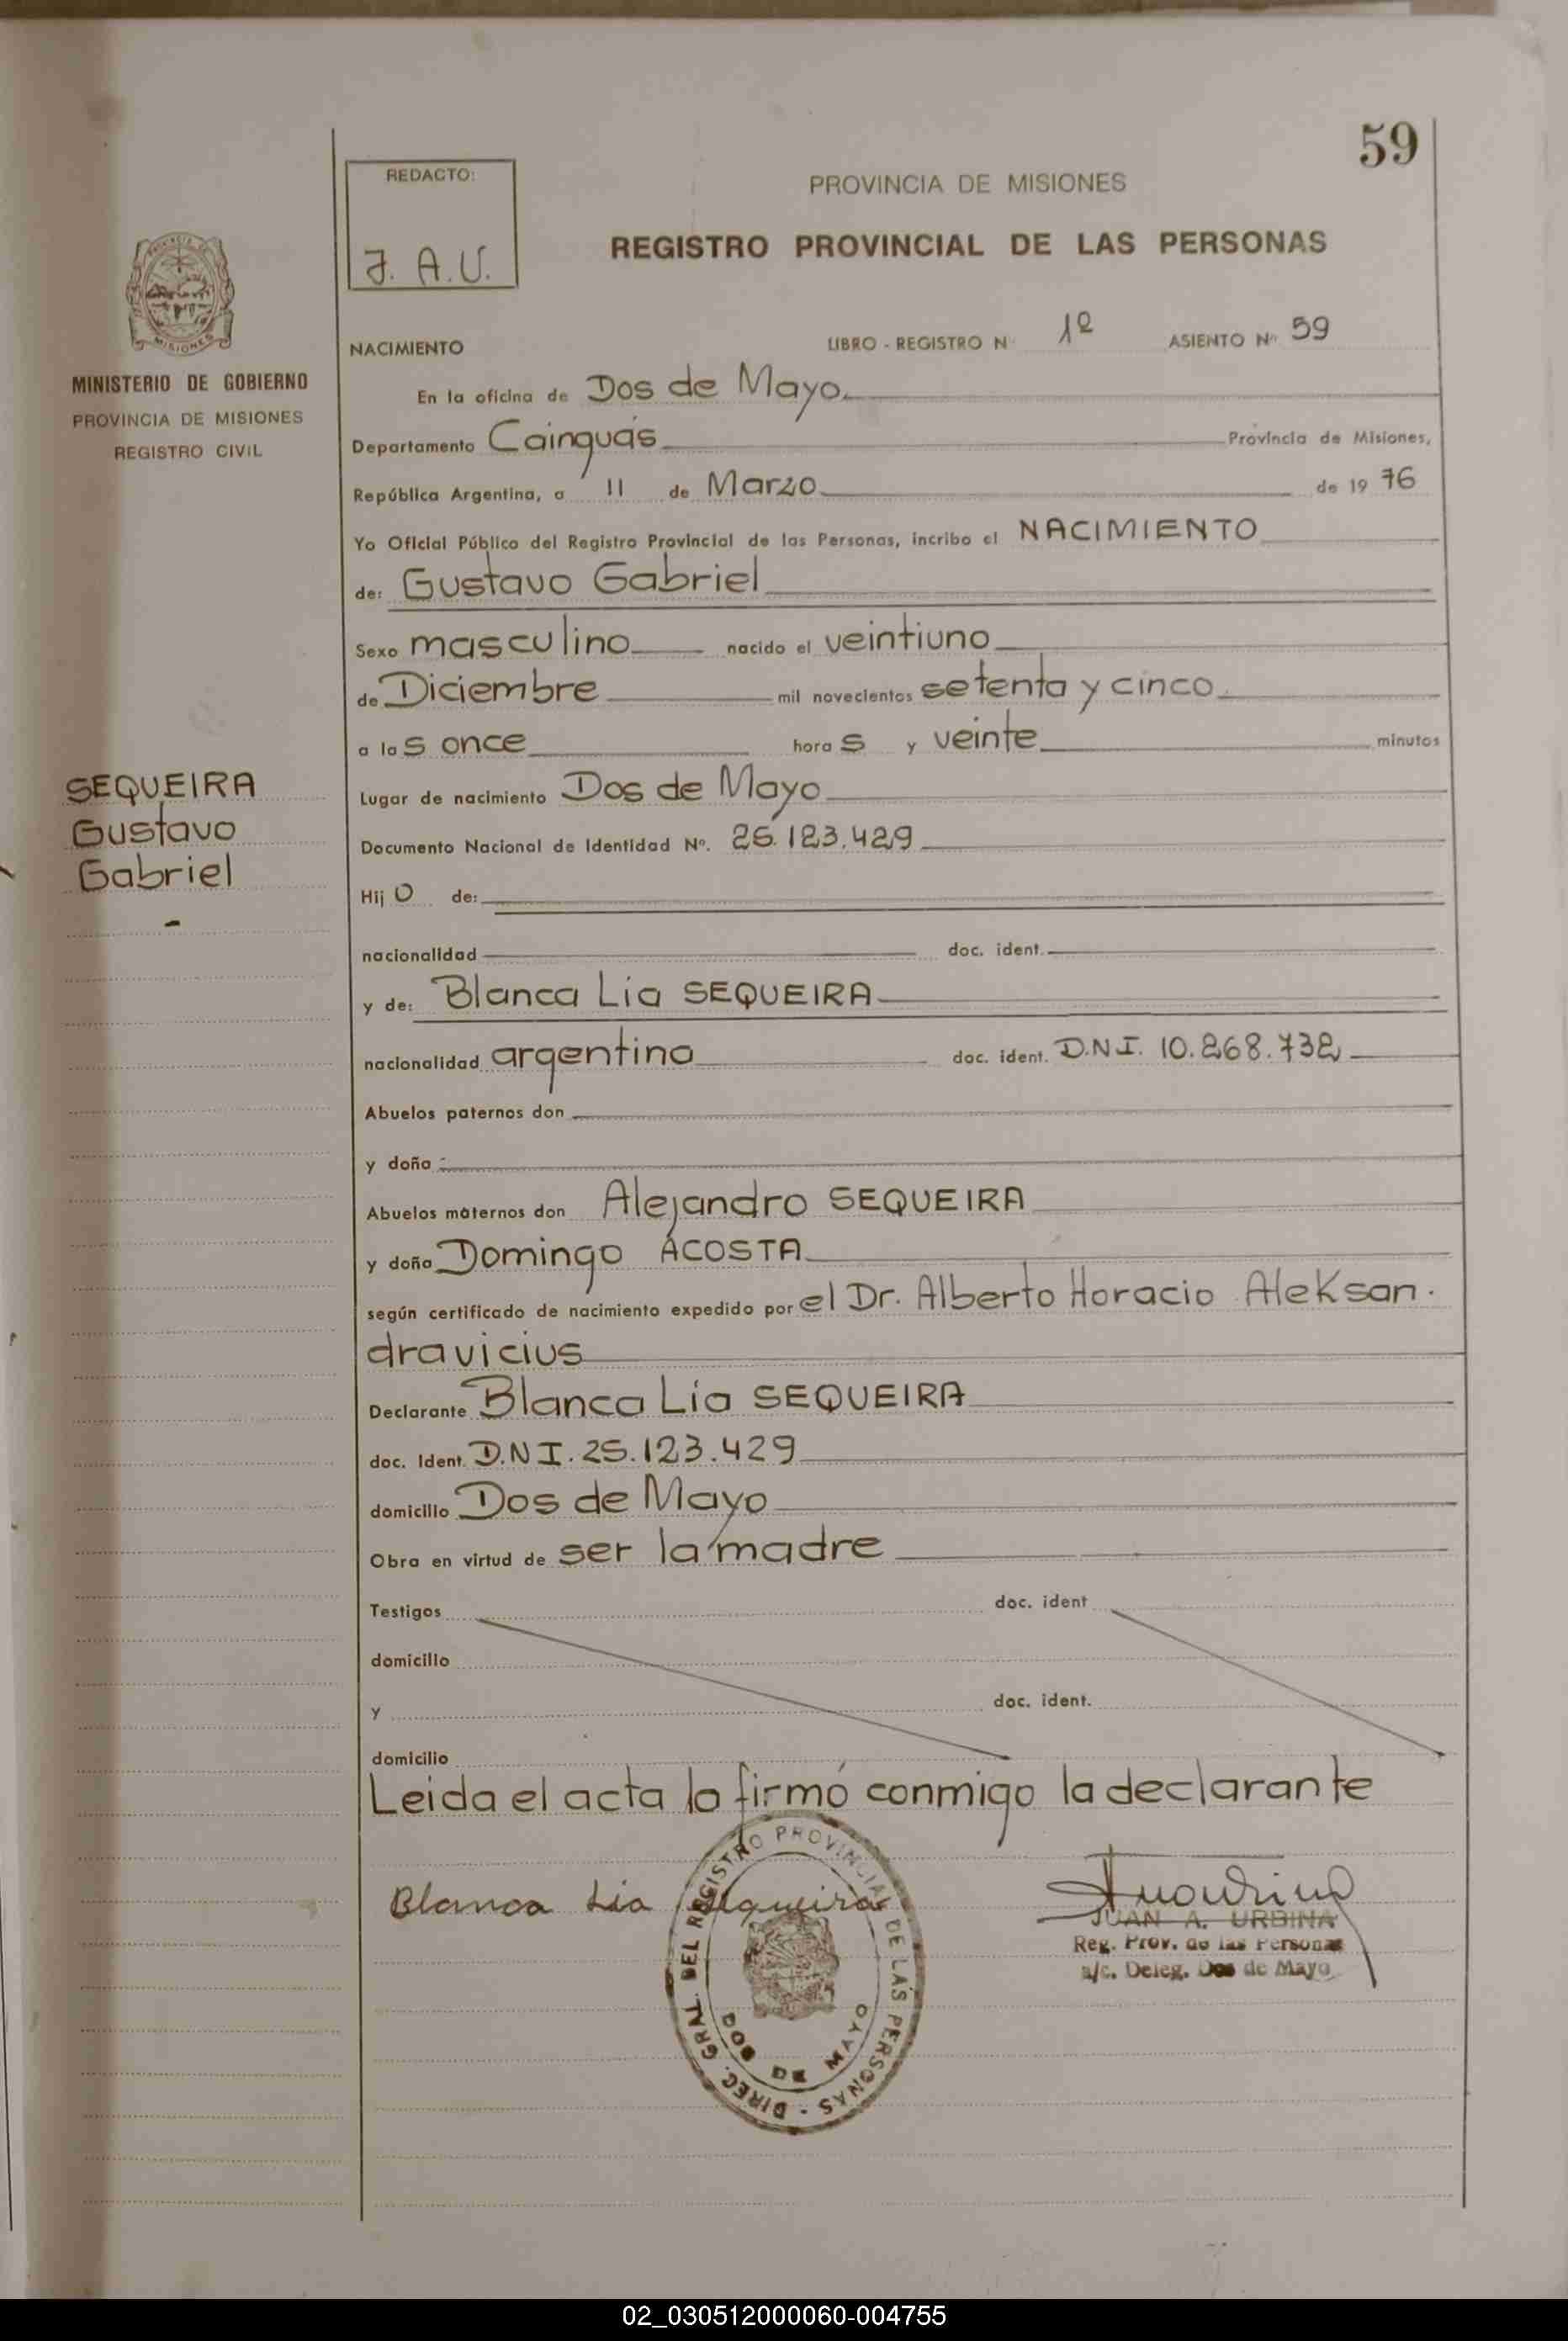 59
REDACTO:
J. A. U.
PROVINCIA DE MISIONES
REGISTRO PROVINCIAL DE LAS PERSONAS
MISIONES
MINISTERIO DE GOBIERNO
PROVINCIA DE MISIONES
REGISTRO CIVIL
NACIMIENTO LIBRO - REGISTRO N 1º ASIENTO Nº 59
En la oficina de Dos de Mayo
Departamento Cainguás Provincia de Misiones,
República Argentina, a 11 de Marzo de 19 76
Yo Oficial Público del Registro Provincial de las Personas, incribo el NACIMIENTO
de: Gustavo Gabriel
Sexo masculino nacido el veintiuno
de Diciembre mil novecientos setenta y cinco
a las once horas y veinte minutos
SEQUEIRA
Gustavo
Gabriel
-
Lugar de nacimiento Dos de Mayo
Documento Nacional de Identidad Nº. 25.123.429
Hijo de:
nacionalidad doc. ident.
y de: Blanca Lia SEQUEIRA
nacionalidad argentina doc. ident. D.N.I. 10.268.732
Abuelos paternos don
y doña
Abuelos maternos don Alejandro SEQUEIRA
y doña Dominga ACOSTA
según certificado de nacimiento expedido por el Dr. Alberto Horacio Aleksan.
dravicius
Declarante Blanca Lia SEQUEIRA
doc. Ident. D.N.I. 25.123.429
domicilio Dos de Mayo
Obra en virtud de ser la madre
Testigos doc. ident
domicilio
y doc. ident.
domicilio
Leida el acta la firmó conmigo la declarante
Blanca Lia Sequeira
JUAN A. URBINA
Reg. Prov. de las Personas
a/c. Deleg. Dos de Mayo
DIREC. GRAL. DEL REGISTRO PROVINCIAL DE LAS PERSONAS -
DOS DE MAYO
02_030512000060-004755